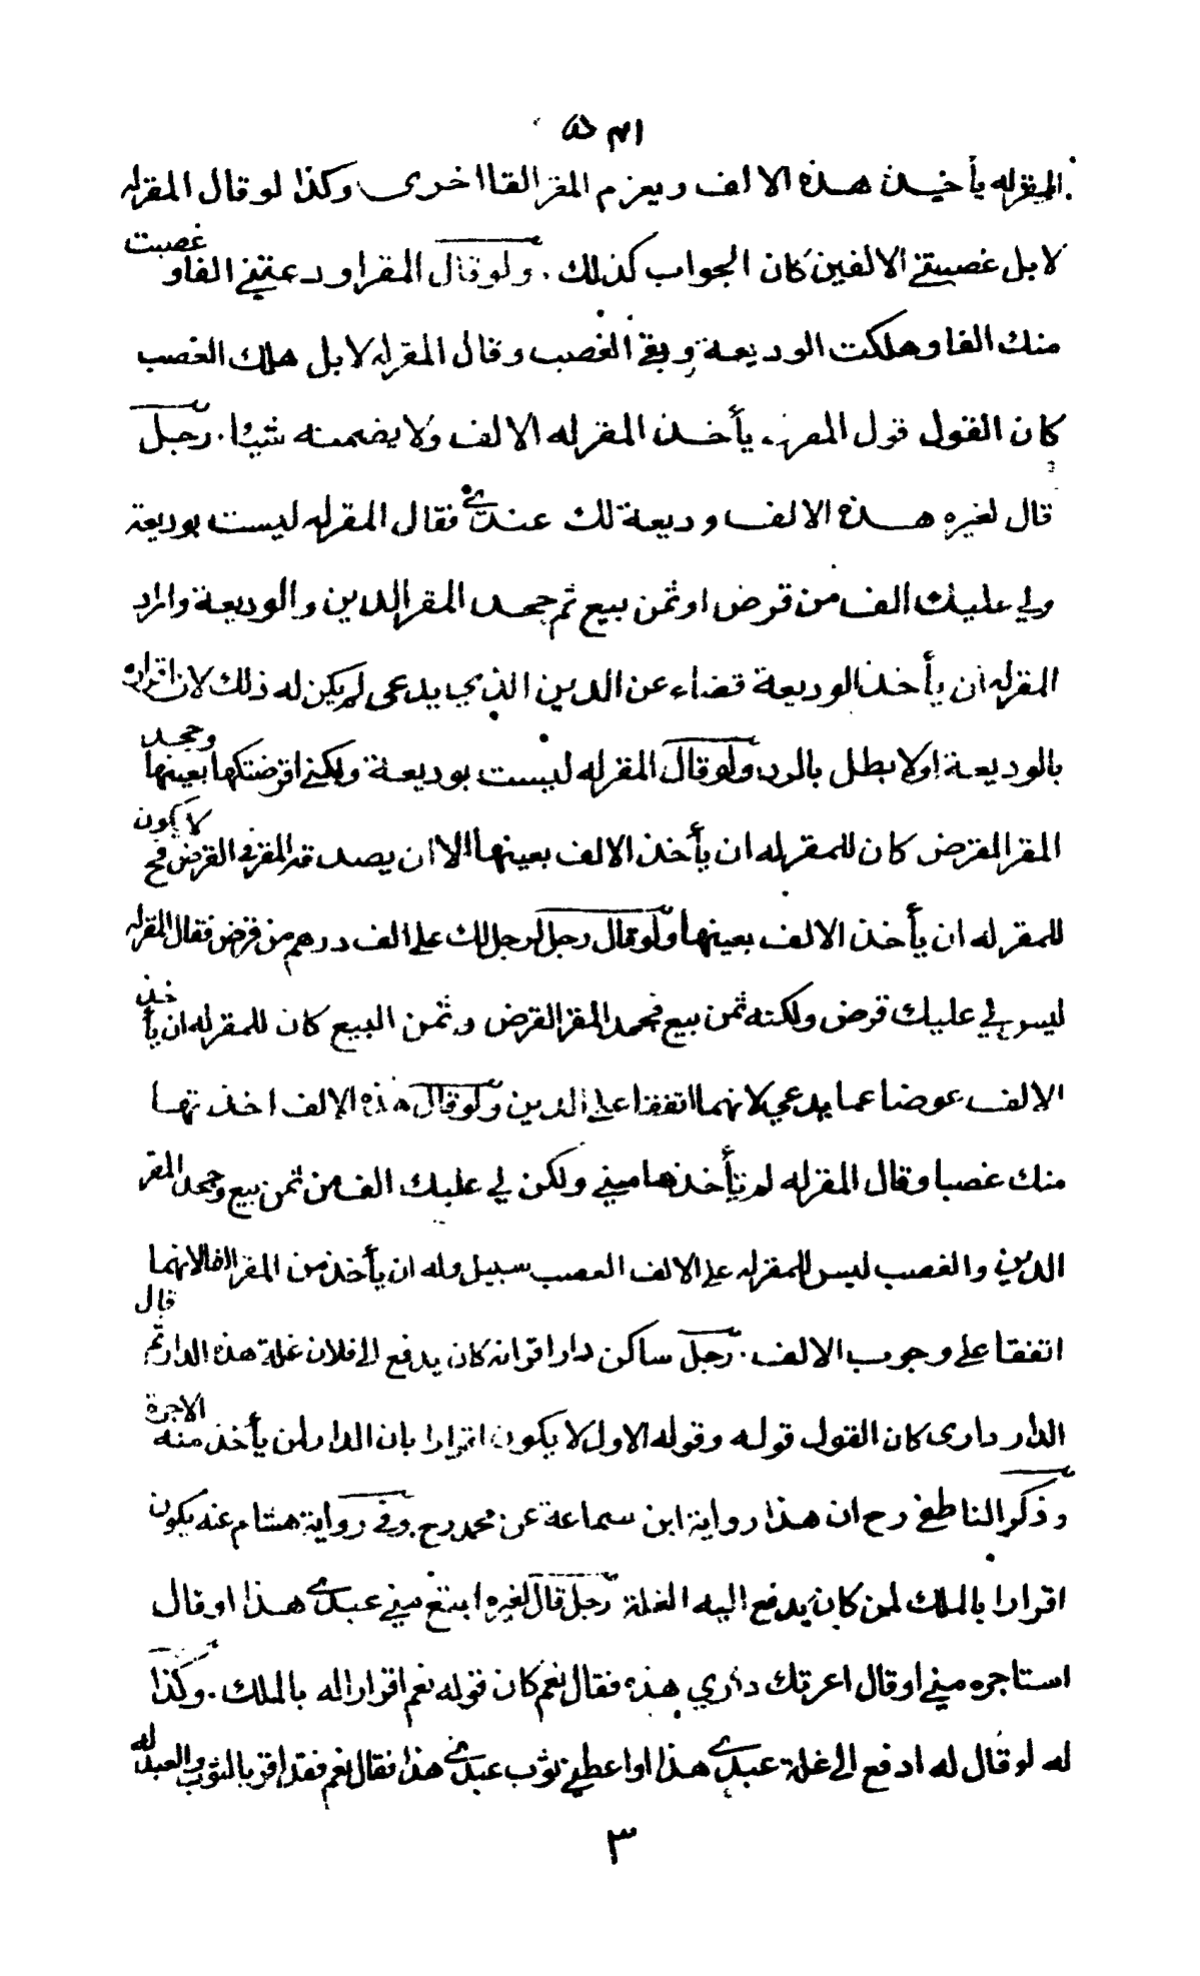 المقر له يأخذ هذه الالف ويغرم المقر الفا اخرى وكذا لو قال المقر له
لا بل غصبتني الالفين كان الجواب كذلك . ولو قال المقر اودعتني الفا و غصبت
منك الفا وهلكت الوديعة وبقي الغصب وقال المقر له لا بل هلك الغصب
كان القول قول المقر له يأخذ المقر له الالف ولا يضمنه شيئا . رجل
قال لغيره هذه الالف وديعة لك عندي فقال المقر له ليست بوديعة
ولي عليك الف من قرض او ثمن بيع ثم جحد المقر الدين والوديعة واراد
المقر له ان يأخذ الوديعة قضاء عن الدين الذي يدعي لم يكن له ذلك لان اقراره
بالوديعة اولا بطل بالرد ولو قال المقر له ليست بوديعة ولكني اقرضتكها بعينها وجحد
المقر القرض كان للمقر له ان يأخذ الالف بعينها الا ان يصدقه المقر في القرض فح لا يكون
للمقر له ان يأخذ الالف بعينها ولو قال رجل لرجل لك علي الف درهم من قرض فقال المقر له
ليس لي عليك قرض ولكنه ثمن بيع فجحد المقر القرض وثمن البيع كان للمقر له ان يأخذ
الالف عوضا عما يدعي لانهما اتفقا على الدين ولو قال هذه الالف اخذتها
منك غصبا وقال المقر له لم تأخذها مني ولكن لي عليك الف من ثمن بيع وجحد المقر
الدين والغصب ليس للمقر له على الالف الغصب سبيل وله ان يأخذ من المقر الفا لانهما
اتفقا على وجوب الالف . رجل ساكن دار اقر انه كان يدفع الى فلان غلة هذه الدار ثم قال
الدار داري كان القول قوله وقوله الاول لا يكون اقرارا بان الدار لمن يأخذ منه الاجرة
وذكر الناطفي رح ان هذا رواية ابن سماعة عن محمد رح وفي رواية هشام عنه يكون
اقرارا بالملك لمن كان يدفع اليه الغلة رجل قال لغيره ابتع مني عبدي هذا او قال
استاجره مني او قال اعرتك داري هذه فقال نعم كان قوله نعم اقرارا له بالملك . وكذا
له لو قال له ادفع الى غلة عبدي هذا او اعطني ثوب عبدي هذا فقال نعم فقد اقر بالثوب والعبد له
٣